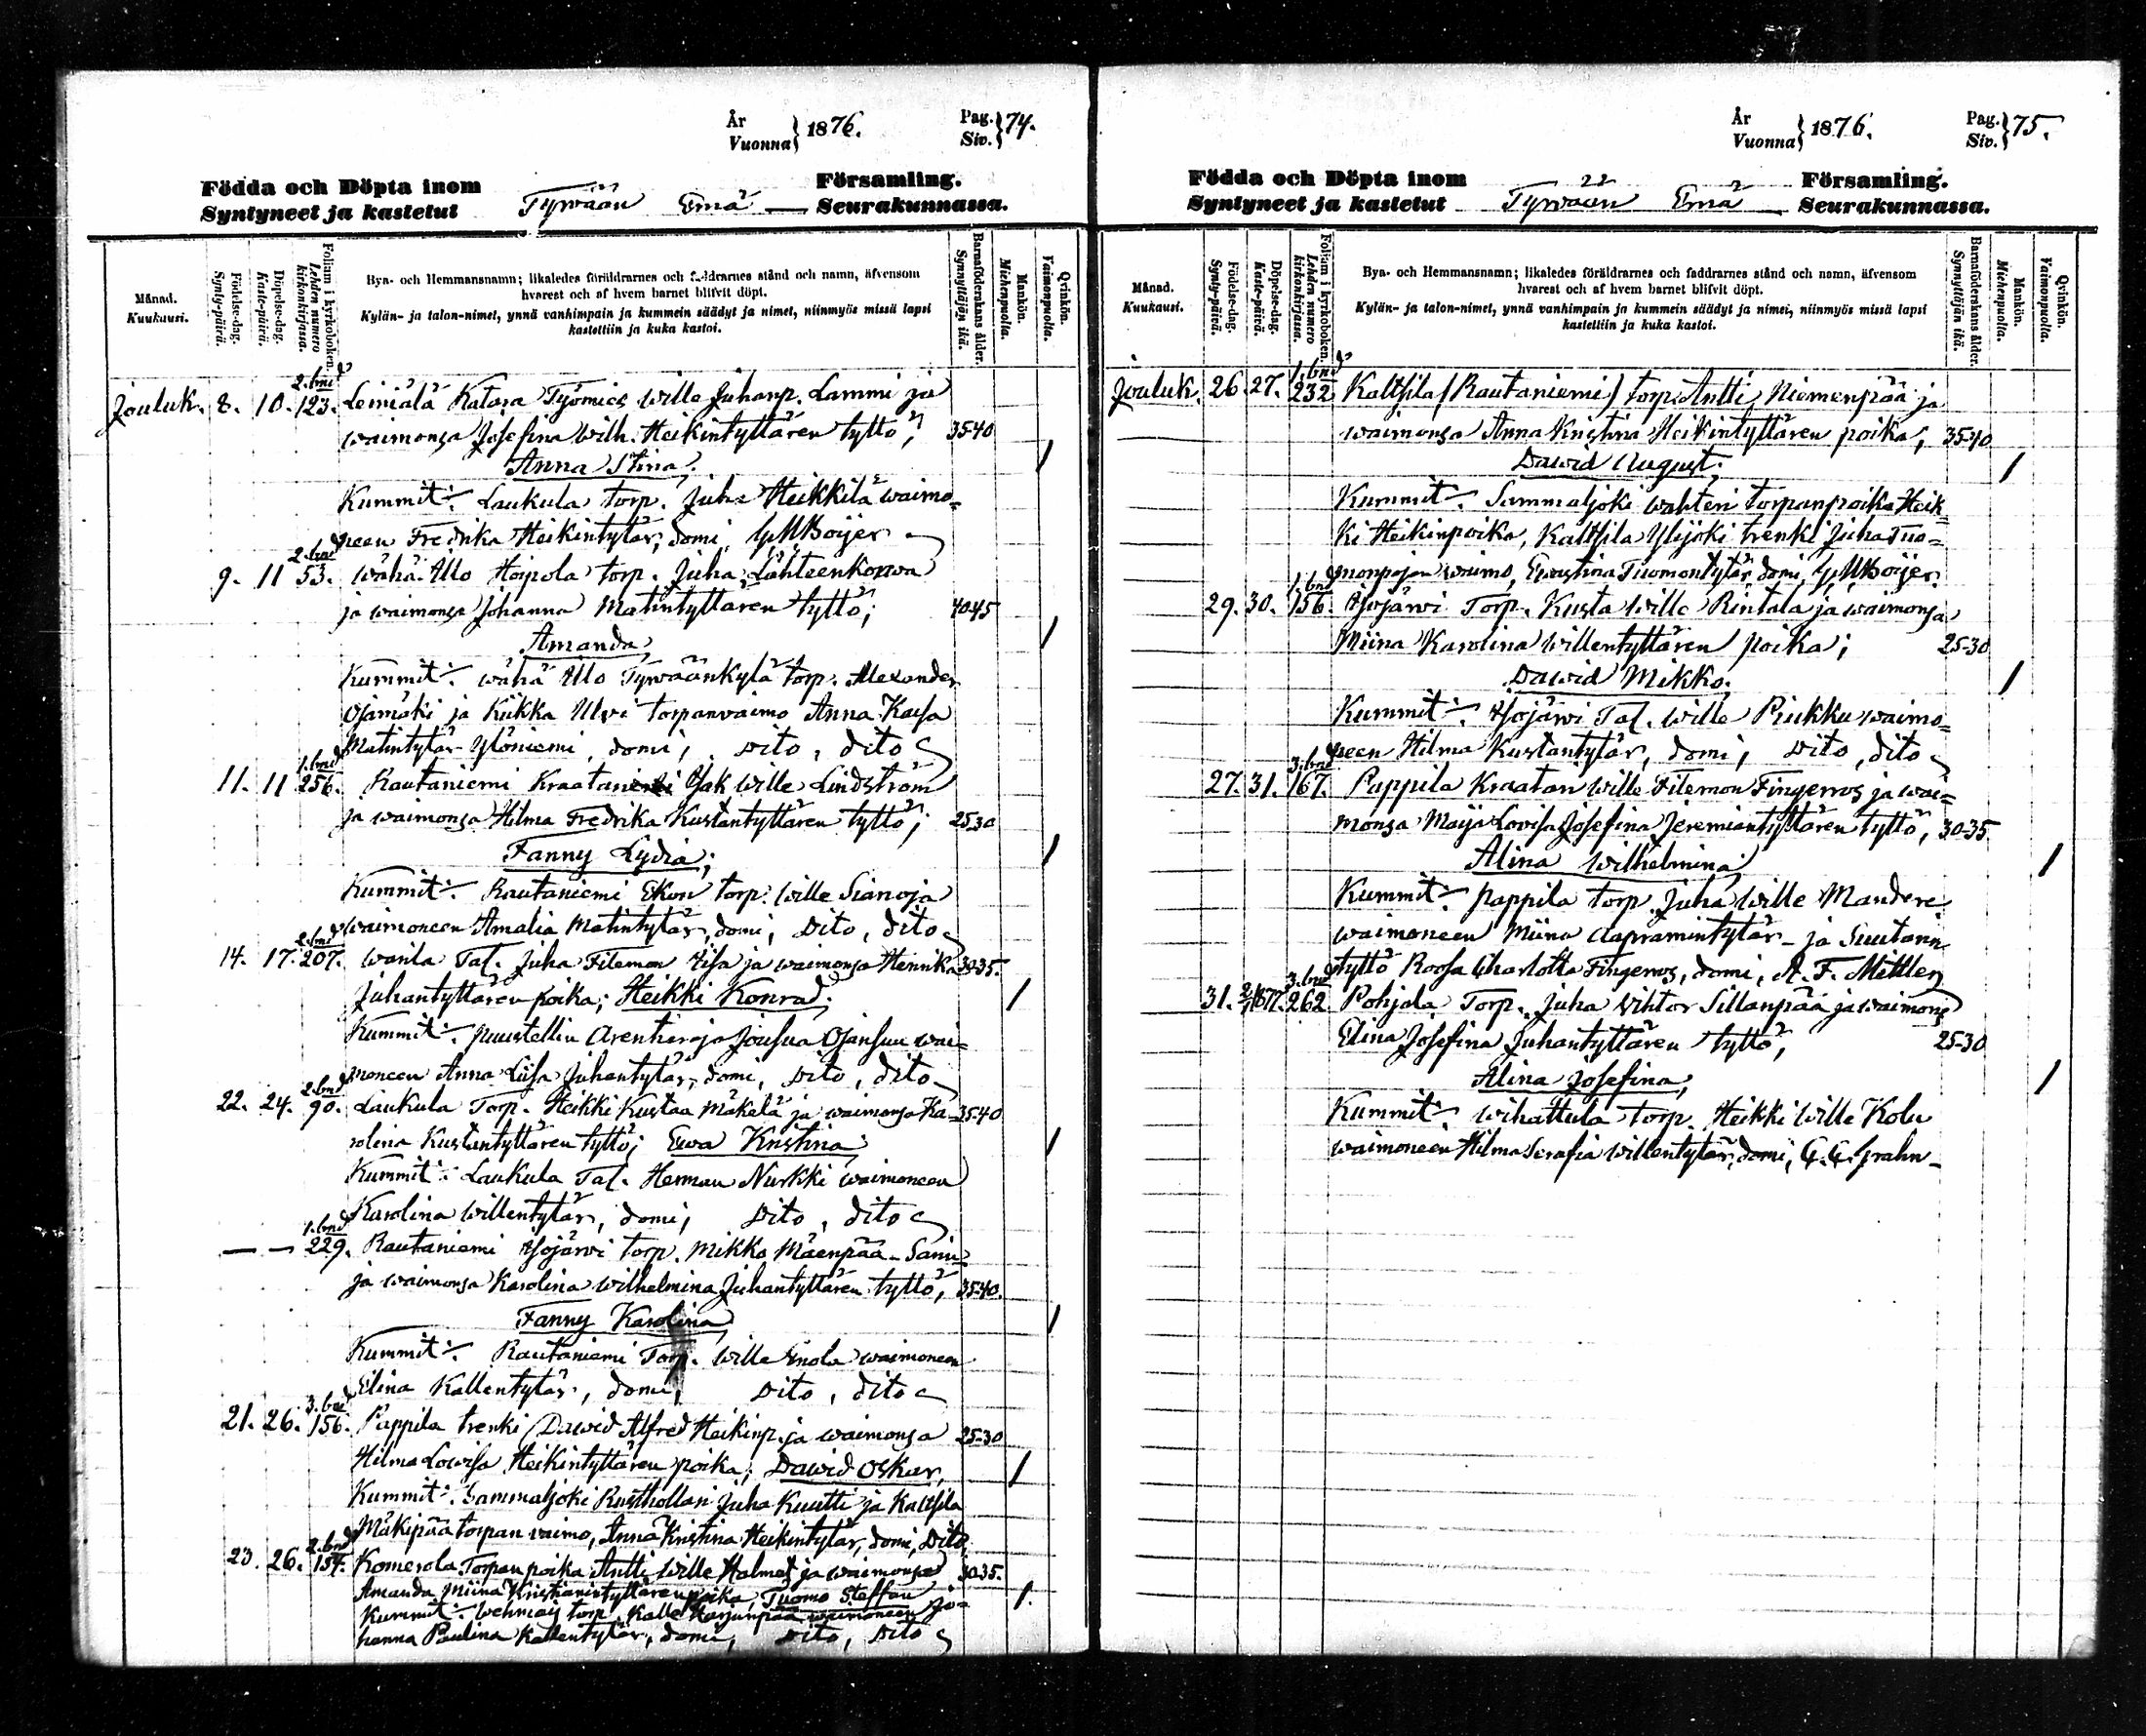 År
Vuonna } 1876.
Pag.
Siv. } 74.
Födda och Döpta inom Församling.
Syntyneet ja kastetut Tyrvään Emä Seurakunnassa.
Månad.
Kuukausi.
Födelse-dag.
Synty-päivä.
Döpelse-dag.
Kaste-päivä.
Folium i kyrkoboken.
Lehden numero kirkonkirjassa.
Bya- och Hemmansnamn; likaledes föräldrarnes och faddrarnes stånd och namn, äfvensom
hvarest och af hvem barnet blifvit döpt.
Kylän- ja talon-nimet, ynnä vanhimpain ja kummein säädyt ja nimet, niinmyös missä lapsi
kastettiin ja kuka kastoi.
Barnaföderskans ålder.
Synnyttäjän ikä.
Mankön.
Miehenpuolta.
Qvinkön.
Vaimonpuolta.
2. bnd
Jouluk. 8. 10. 123. Leiniälä Katara Työmies Wille Juhanp. Lammi ja
waimonsa Josefina Wilh. Heikintyttären tyttö; 35-40
Anna Stina;
Kummit:. Laukula torp. Juha Heikkilä waimo=
neen Fredrika Heikintytär, domi, G.M.Boijer
2. bnd
9. 11 53. Wähä Ulo Hoipola torp. Juha Lähteenkorwa
ja waimonsa Johanna Matintyttären tyttö; 40-45
Amanda,
Kummit:. Wähä Ulo Tyrwäänkylä torp. Alexander
Ojamäki ja Kiikka Ulvi torpanvaimo Anna Kaisa
Matintytär Ylöniemi domi, Dito, dito
1. bnd
11. 11 256. Rautaniemi Kraatari Isak Wille Lindström
ja waimonsa Hilma Fredrika Kustantyttären tyttö; 25-30
Fanny Lydia;
Kummit:. Rautaniemi Ekon torp. Wille Sianoja
waimoneen Amalia Matintytär, domi, Dito, dito
2. bnd
14. 17. 207. Warila Tal. Juha Filemon Iisa ja waimonsa Henrika 30-35.
Juhantyttären poika; Heikki Konrad;
Kummit:. puustellin Arentiraja Joosua Ojansuu wai=
moneen Anna Liisa Juhantytär, domi, Dito, dito
2. bnd
22. 24. 90. Laukula Torp. Heikki Kustaa Mäkelä ja waimonsa Ka= 35-40
rolina Kustantyttären tyttö; Ewa Kristina;
Kummit: Laukula Tal. Herman Nurkki waimoneen
Karolina Willentytär, domi, Dito, dito
1. bnd
— — 229. Rautaniemi Isojärwi torp. Mikko Mäenpää-Sani
ja waimonsa Karolina Wilhelmina Juhantyttären tyttö, 35-40.
Fanny Karolina
Kummit:. Rautaniemi Torp. Wille Enola waimoneen
Elina Kallentytär, domi, Dito, dito
3. bnd
21. 26. 156. Pappila trenki Dawid Alfred Heikinp. ja waimonsa 25-30
Hilma Lowisa Heikintyttären poika; Dawid Oskar,
Kummit:. Sammaljoki Rusthollari Juha Kuutti ja Kaltsila
Mäkipää torpan vaimo, Anna Kristina Heikintytär, domi, Dito,
2. bnd
23. 26. 154. Komerola Torpan poika Antti Wille Halmet ja waimonsa 30-35.
Amanda Miina Kristianintyttären poika, Tuomo Steffan
Kummit:. Wehmaij torp. Kalle Harjunpää waimoneen Jo=
hanna Paulina Kallentytär, domi, Dito, Dito
År
Vuonna } 1876.
Pag.
Siv. } 75.
Födda och Döpta inom Församling.
Syntyneet ja kastetut Tyrvään Emä Seurakunnassa.
Månad.
Kuukausi.
Födelse-dag.
Synty-päivä.
Döpelse-dag.
Kaste-päivä.
Folium i kyrkoboken.
Lehden numero kirkonkirjassa.
Bya- och Hemmansnamn; likaledes föräldrarnes och faddrarnes stånd och namn, äfvensom
hvarest och af hvem barnet blifvit döpt.
Kylän- ja talon-nimet, ynnä vanhimpain ja kummein säädyt ja nimet, niinmyös missä lapsi
kastettiin ja kuka kastoi.
Barnaföderskans ålder.
Synnyttäjän ikä.
Mankön.
Miehenpuolta.
Qvinkön.
Vaimonpuolta.
1. bnd
Jouluk. 26 27. 232 Kaltsila (Rautaniemi) torp. Antti Niemenpää ja
waimonsa Anna Kristina Heikintyttären poika, 35-40
Dawid August;
Kummit:. Sammaljoki Wahteri torpanpoika Heik=
ki Heikinpoika, Kaltsila Ylijoki trenki Juha Tuo=
monpojan waimo, Ewastina Tuomontytär, domi, G.M.Boijer.
1. bnd
29. 30. 156. Isojärwi Torp. Kusta Wille Rintala ja waimonsa
Miina Karolina Willentyttären poika; 25-30
Dawid Mikko.
Kummit:. Isojärwi Tal. Wille Piukku waimo=
neen Hilma Kustantytär, domi, Dito, dito
3. bnd
27. 31. 167. Pappila Kraatari Wille Filemon Fingerroos ja wai=
monsa Maija Lovisa Josefina Jeremiantyttären tyttö, 30-35
Alina Wilhelmina;
Kummit:. Pappila torp. Juha Wille Mandere
waimoneen Miina Aapramintytär ja Suutarin
tyttö Roosa Charlotta Fingerroos, domi, A. F. Mittler
3. bnd
31. 2/1 1877. 262 Pohjala Torp. Juha Wihtor Sillanpää ja waimons
Elina Josefina Juhantyttären tyttö, 25-30
Alina Josefina,
Kummit:. Wihattula torp. Heikki Wille Kolu
waimoneen Hilma Serafia Willentytär, domi, G. G. Grahn